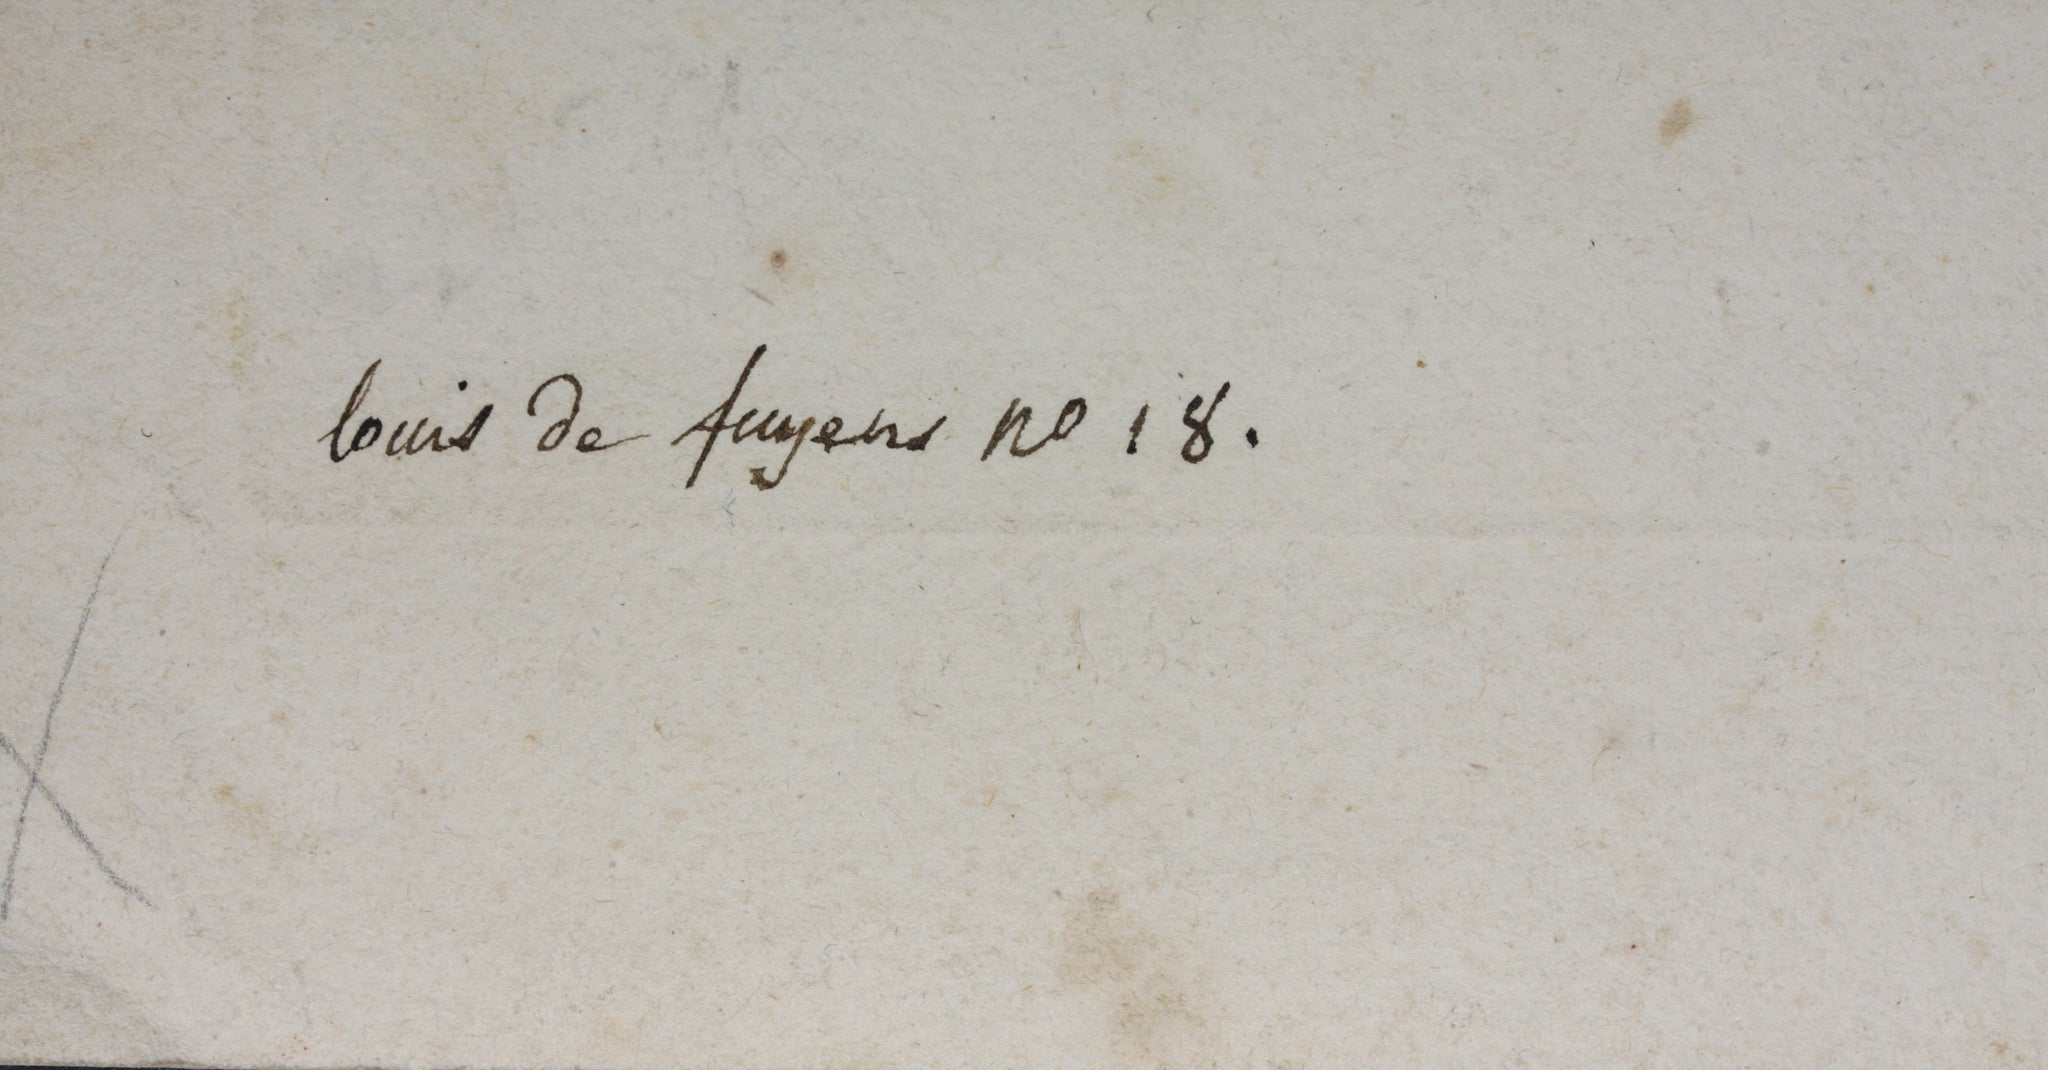 louis de fuyens no 18.